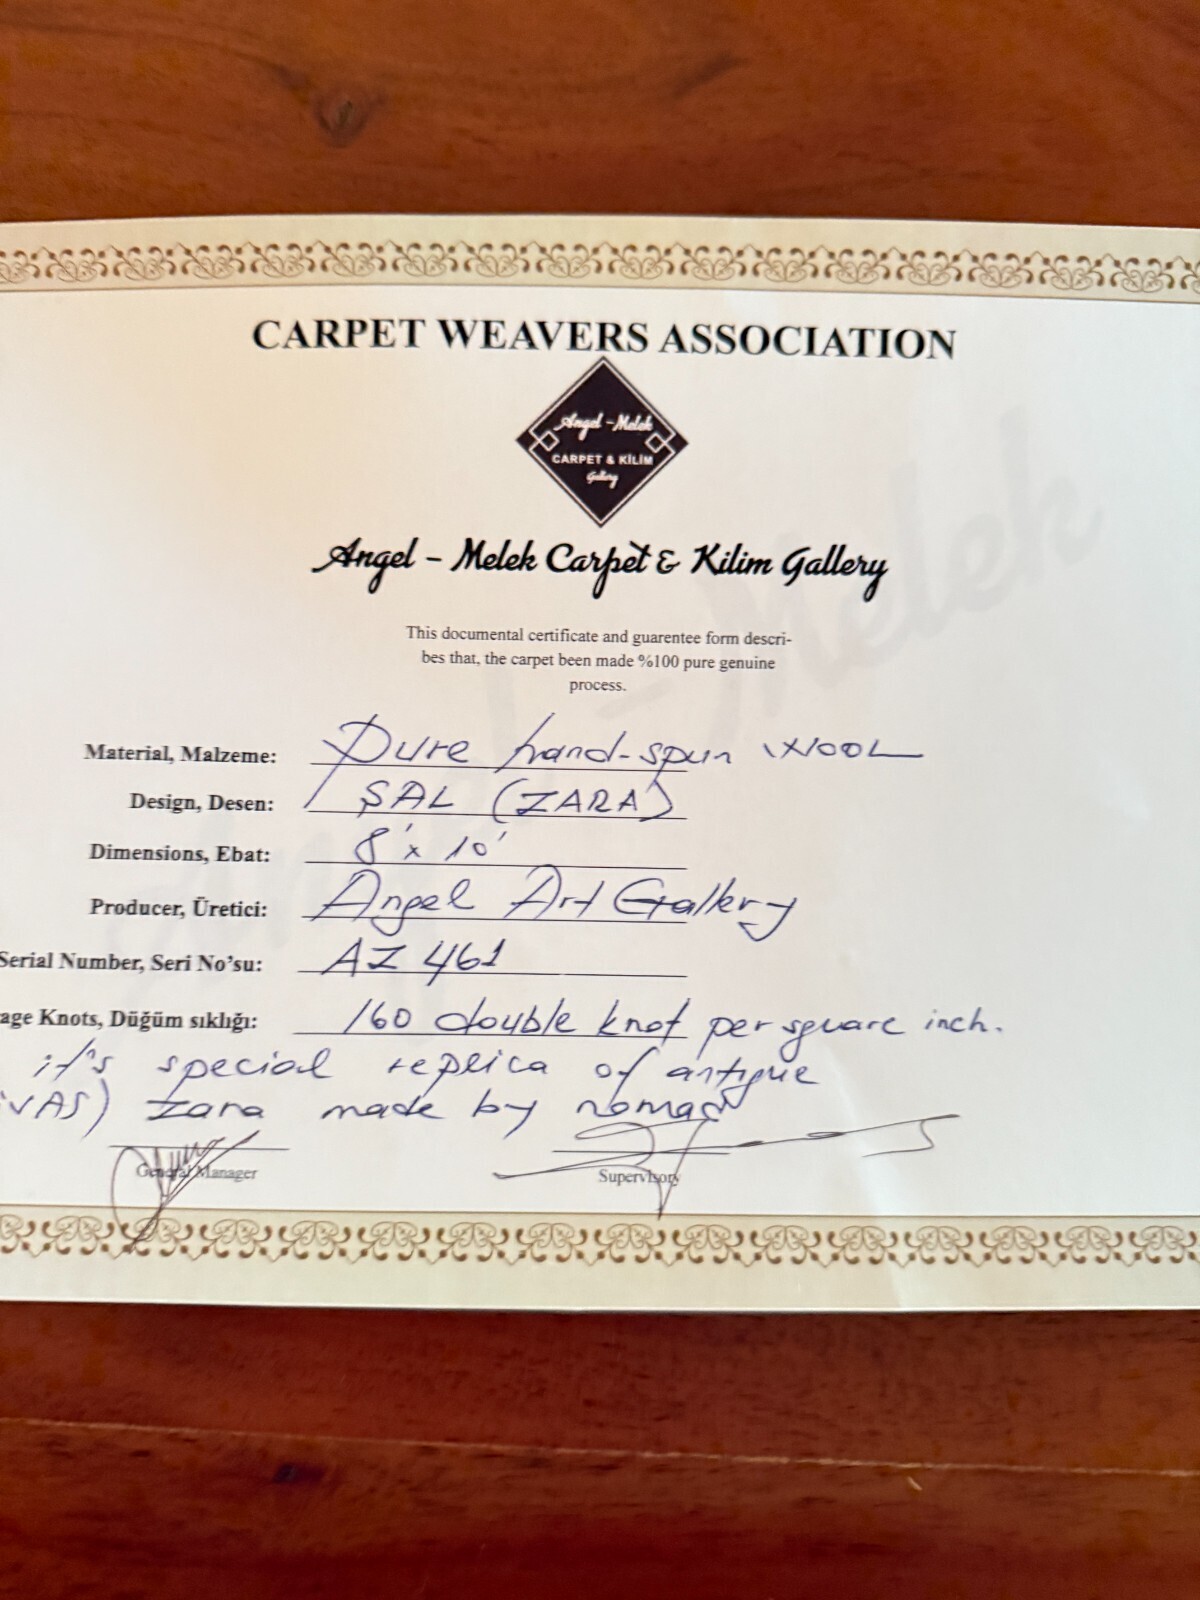 CARPET WEAVERS ASSOCIATION
Angel - Melek
CARPET & KİLİM
Gallery
Angel - Melek Carpet & Kilim Gallery
This documental certificate and guarentee form descri-
bes that, the carpet been made %100 pure genuine
process.
Material, Malzeme: Pure hand-spun WOOL
Design, Desen: ŞAL (ZARA)
Dimensions, Ebat: 8' x 10'
Producer, Üretici: Angel Art Gallery
Serial Number, Seri No'su: AZ 461
age Knots, Düğüm sıklığı: 160 double knot per square inch.
it's special replica of antique
VAS) zara made by nomad
General Manager Supervisory